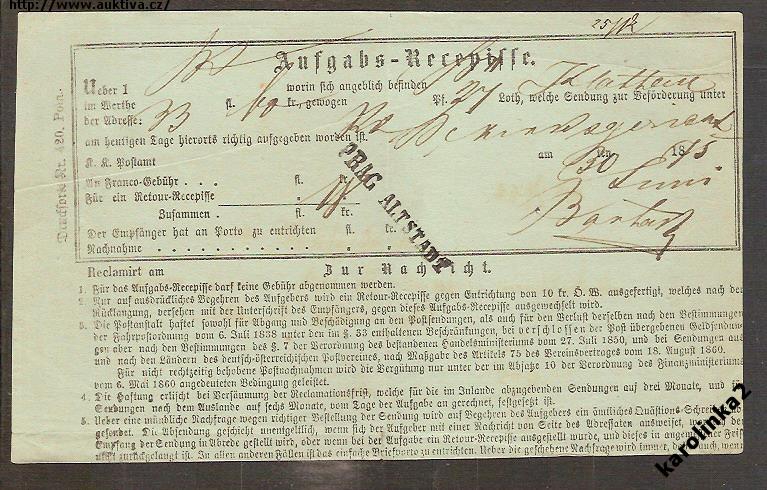 http://www.auktiva.cz/
25/12
Aufgabs-Recepisse.
Ueber 1 worin sich angeblich befinden
im Werthe 33 fl. kr., gewogen Pf. 27 Loth, welche Sendung zur Beförderung unter
der Adresse: Klattau
am heutigen Tage hierorts richtig aufgegeben worden ist.
K. K. Postamt am 30 ten Juni 1875
An Franco-Gebühr . . . fl. kr.
Für ein Retour-Recepisse
Zusammen . fl. kr.
Der Empfänger hat an Porto zu entrichten fl. kr.
Nachnahme
PRAG ALTSTADT
Drucksorte Nr. 420. Post.
Reclamirt am Zur Nachricht.
1. Für das Aufgabs-Recepisse darf keine Gebühr abgenommen werden.
2. Nur auf ausdrückliches Begehren des Aufgebers wird ein Retour-Recepisse gegen Entrichtung von 10 kr. Ö. W. ausgefertigt, welches nach der
Rücklangung, versehen mit der Unterschrift des Empfängers, gegen dieses Aufgabs-Recepisse ausgewechselt wird.
3. Die Postanstalt haftet sowohl für Abgang und Beschädigung an den Postsendungen, als auch für den Verlust derselben nach den Bestimmungen
der Fahrpostordnung vom 6. Juli 1838 unter den im §. 33 enthaltenen Beschränkungen, bei verschlossen der Post übergebenen Geldsendun-
gen aber nach den Bestimmungen des §. 7 der Verordnung des bestandenen Handelsministeriums vom 27. Juli 1850, und bei Sendungen aus
und nach den Ländern des deutsch-österreichischen Postvereines, nach Maßgabe des Artikels 75 des Vereinsvertrages vom 18. August 1860.
Für nicht rechtzeitig behobene Postnachnahmen wird die Vergütung nur unter der im Absatze 10 der Verordnung des Finanzministeriums
vom 6. Mai 1860 angedeuteten Bedingung geleistet.
4. Die Haftung erlischt bei Versäumung der Reclamationsfrist, welche für die im Inlande abzugebenden Sendungen auf drei Monate, und für
Sendungen nach dem Auslande auf sechs Monate, vom Tage der Aufgabe an gerechnet, festgesetzt ist.
5. Ueber eine mündliche Nachfrage wegen richtiger Bestellung der Sendung wird auf Begehren des Aufgebers ein ämtliches Quästions-Schreiben
gesendet. Die Absendung geschieht unentgeltlich, wenn sich der Aufgeber mit einer Nachricht von Seite des Adressaten ausweiset, der
Empfang der Sendung in Abrede gestellt wird, oder wenn bei der Aufgabe ein Retour-Recepisse ausgestellt wurde, und dieses in angemessener Frist
nicht zurückgelangt ist. In allen anderen Fällen ist das einfache Briefporto zu entrichten. Ueber die geschehene Nachfrage wird immer, auch, wenn
karolinka2